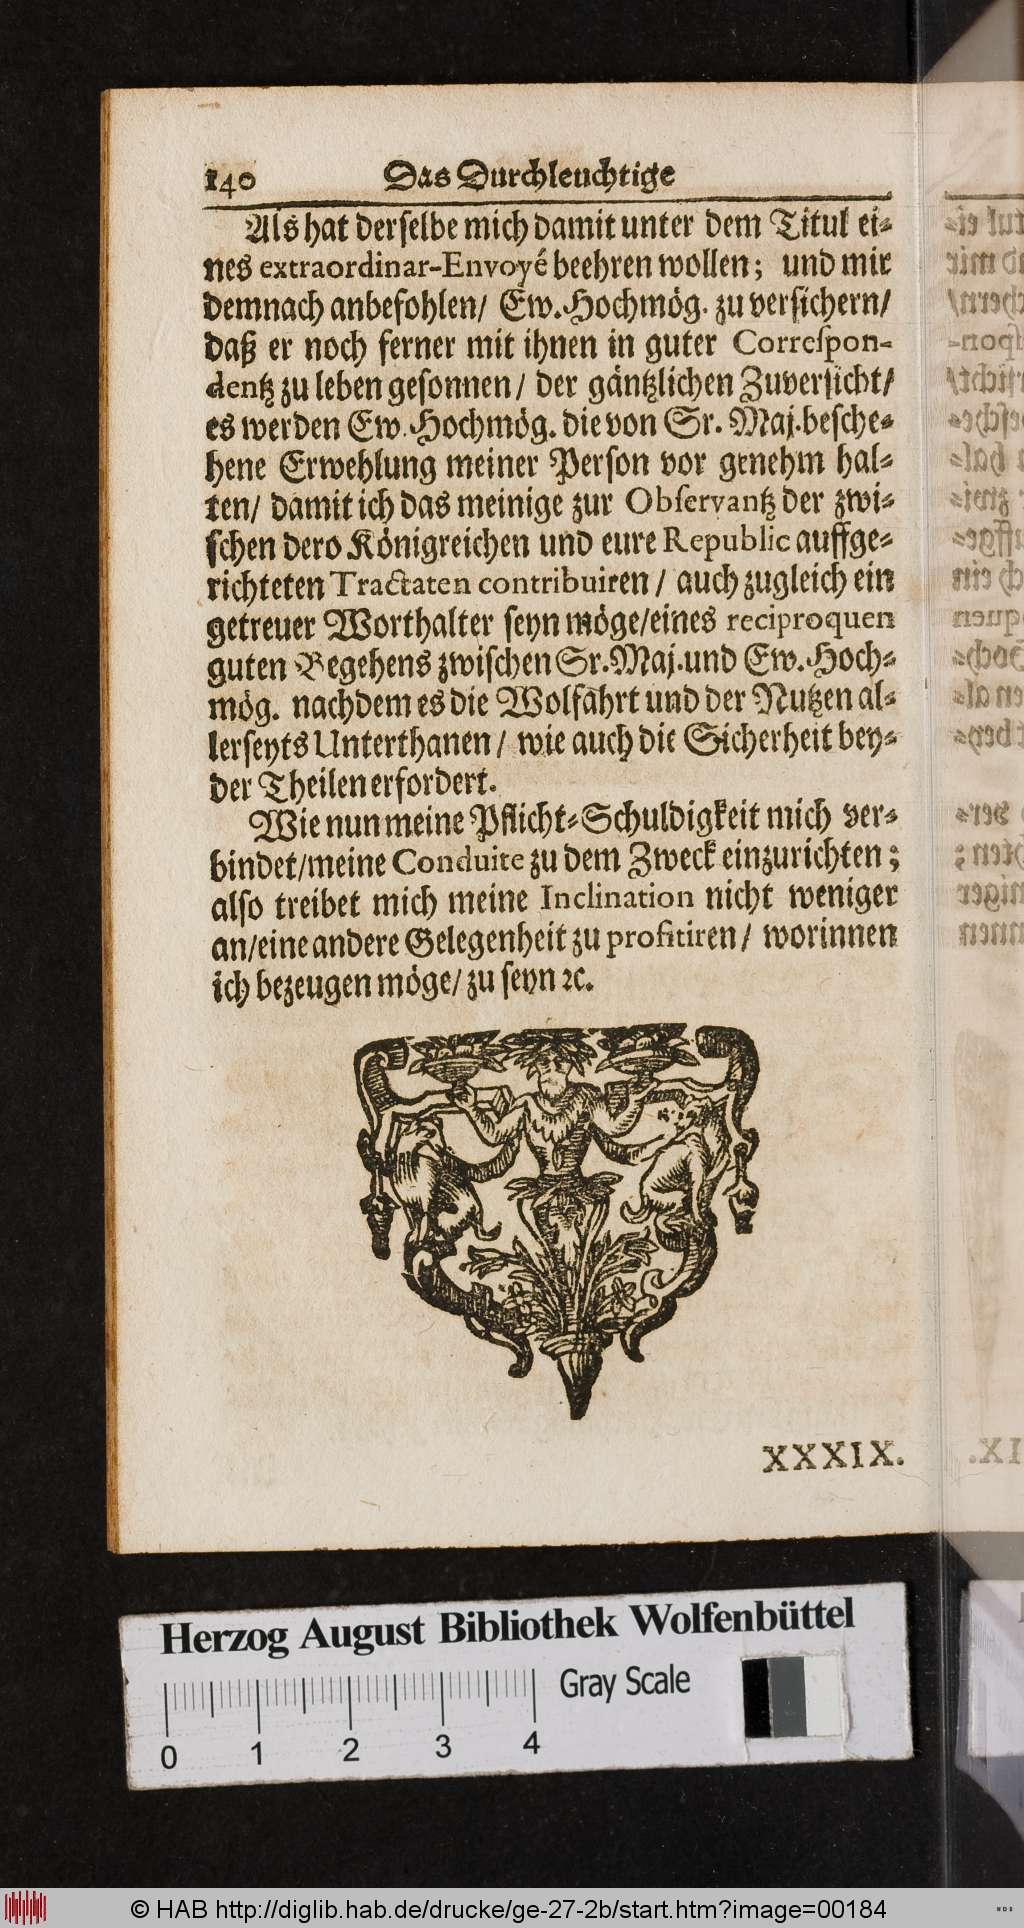 140 Das Durchleuchtige
Als hat derselbe mich damit unter dem Titul ei-
nes extraordinar-Envoyé beehren wollen; und mir
demnach anbefohlen/ Ew. Hochmög. zu versichern/
daß er noch ferner mit ihnen in guter Correſpon-
dentz zu leben gesonnen/ der gäntzlichen Zuversicht/
es werden Ew. Hochmög. die von Sr. Maj. besche-
hene Erwehlung meiner Person vor genehm hal-
ten/ damit ich das meinige zur Obſervantz der zwi-
schen dero Königreichen und eure Republic auffge-
richteten Tractaten contribuiren/ auch zugleich ein
getreuer Worthalter seyn möge/eines reciproquen
guten Begehens zwischen Sr. Maj. und Ew. Hoch-
mög. nachdem es die Wolfahrt und der Nutzen al-
lerseyts Unterthanen/ wie auch die Sicherheit bey-
der Theilen erfordert.
Wie nun meine Pflicht-Schuldigkeit mich ver-
bindet/meine Conduite zu dem Zweck einzurichten;
also treibet mich meine Inclination nicht weniger
an/eine andere Gelegenheit zu profitiren/ worinnen
ich bezeugen möge/ zu seyn ꝛc.
XXXIX.
Herzog August Bibliothek Wolfenbüttel
Gray Scale
0 1 2 3 4
© HAB http://diglib.hab.de/drucke/ge-27-2b/start.htm?image=00184